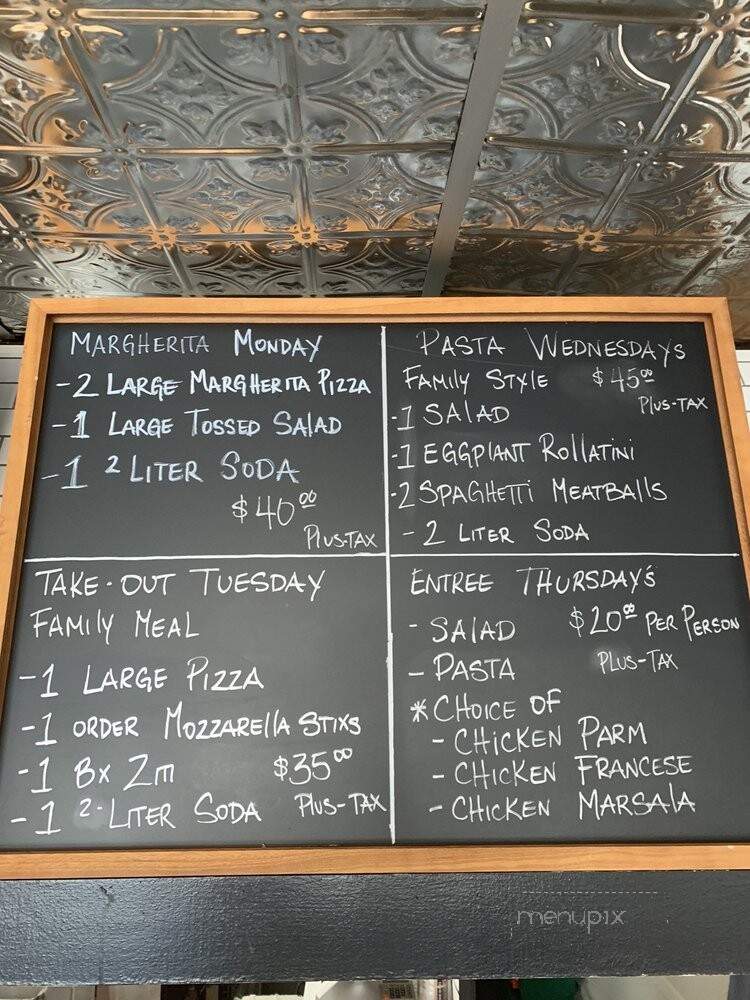 MARGHERITA MONDAY
-2 LARGE MARGHERITA PIZZA
-1 LARGE TOSSED SALAD
-1 2 LITER SODA
$40.00
PLUS-TAX
PASTA WEDNESDAYS
FAMILY STYLE $45.00
PLUS-TAX
-1 SALAD
-1 EGGPLANT ROLLATINI
-2 SPAGHETTI MEATBALLS
- 2 LITER SODA
TAKE-OUT TUESDAY
FAMILY MEAL
-1 LARGE PIZZA
-1 ORDER MOZZARELLA STIXS
-1 Bx Zm $35.00
-1 2-LITER SODA PLUS-TAX
ENTREE THURSDAY'S
- SALAD $20.00 PER PERSON
- PASTA PLUS-TAX
* CHOICE OF
- CHICKEN PARM
- CHICKEN FRANCESE
- CHICKEN MARSALA
menupix